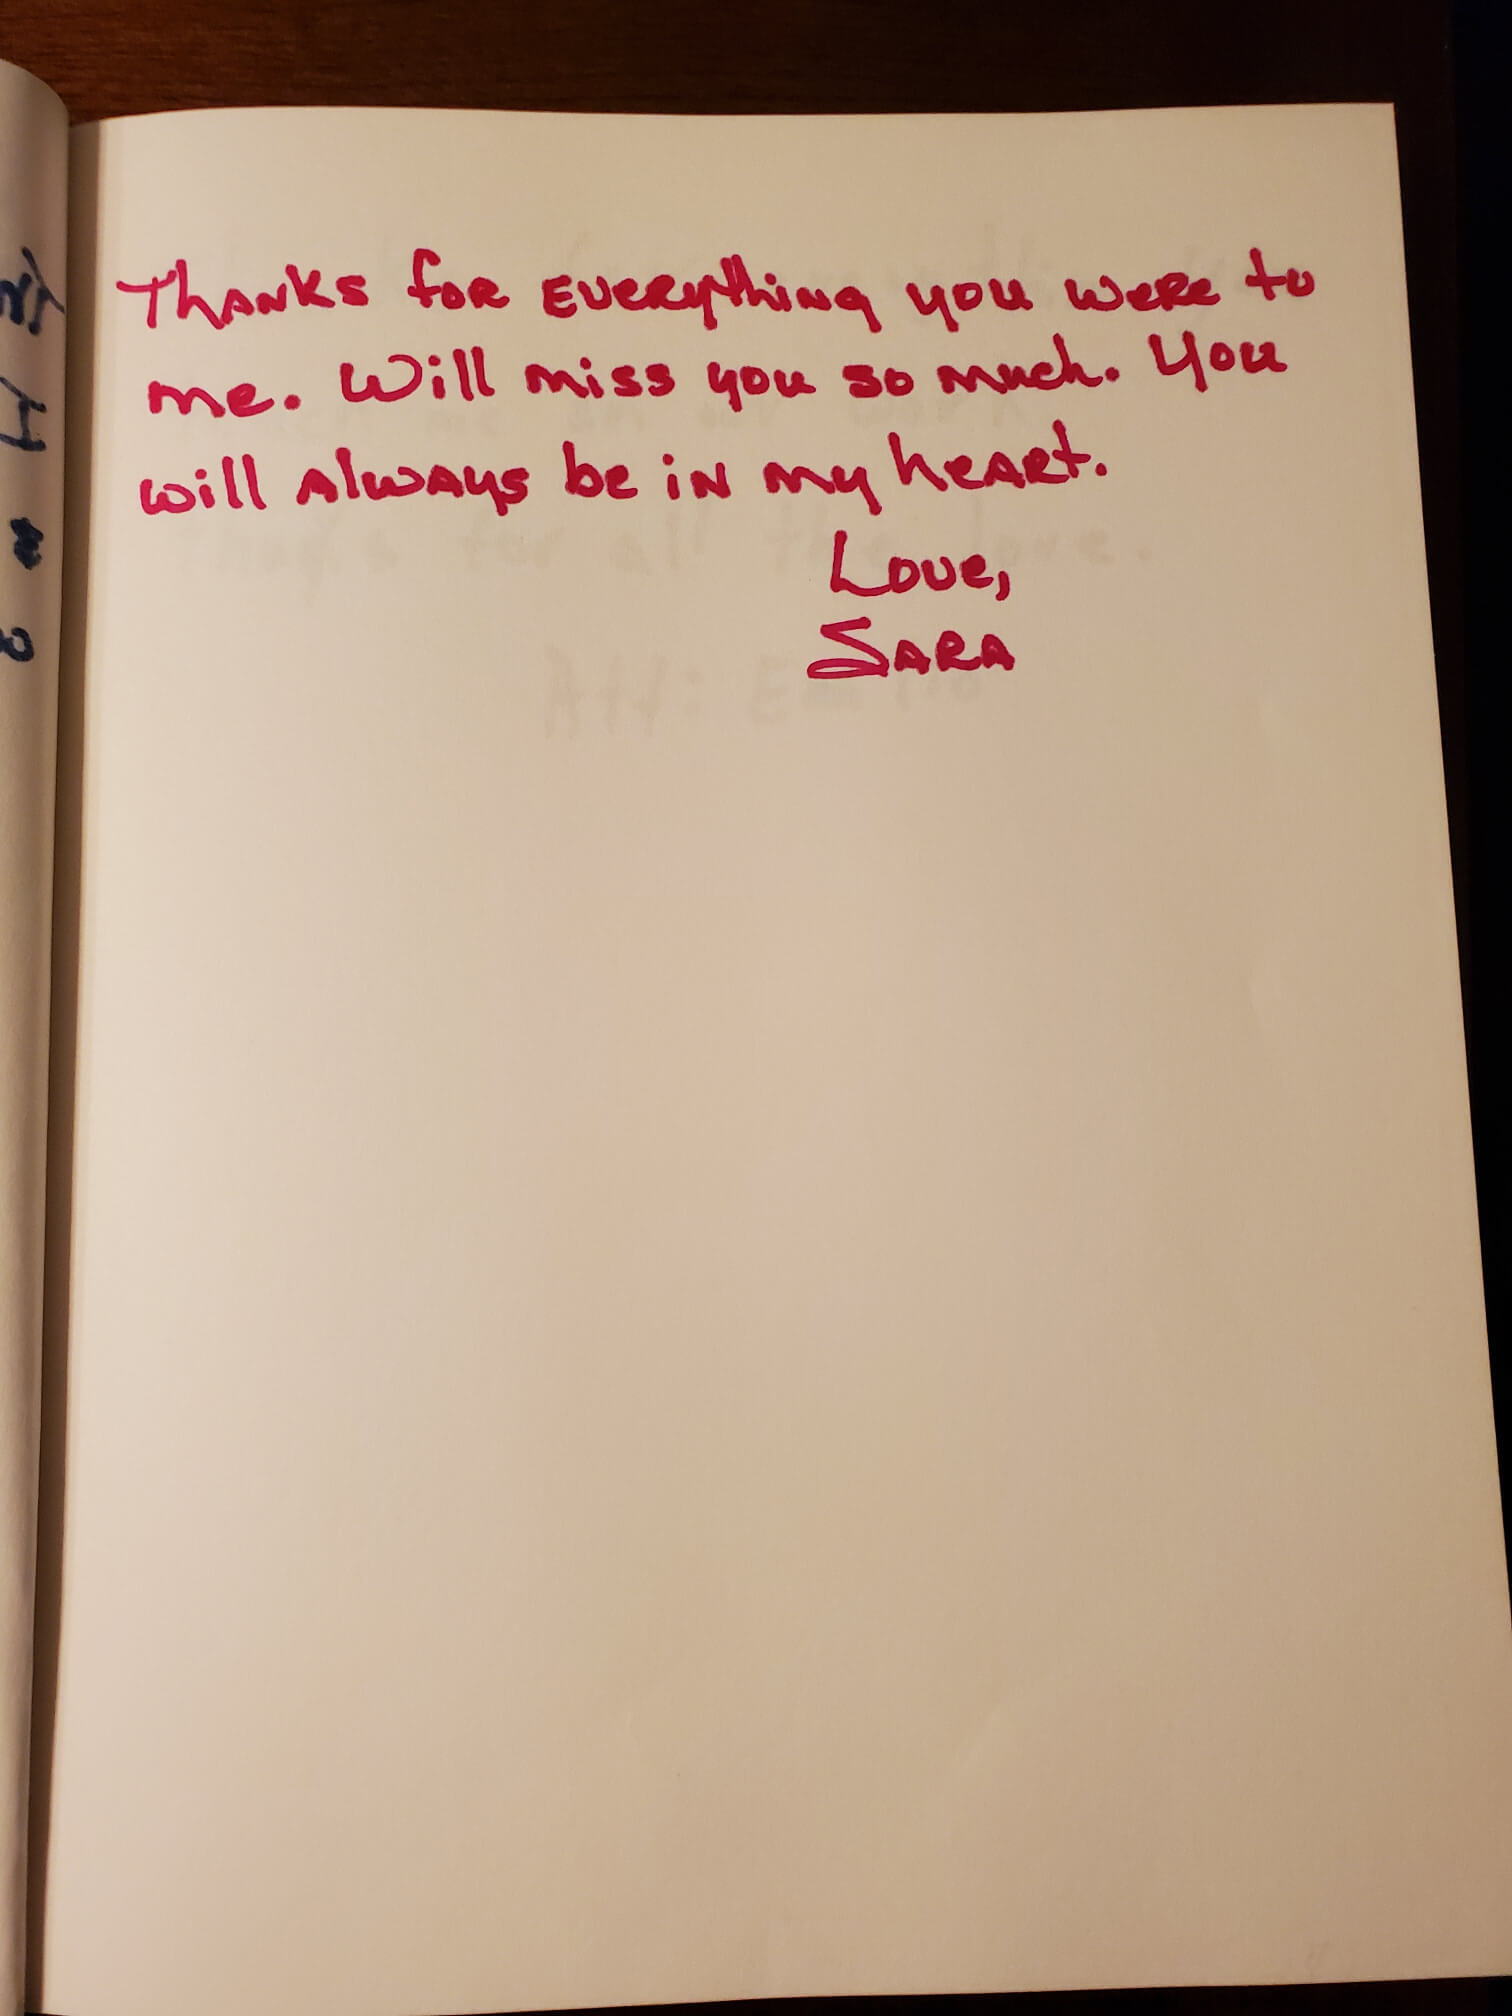 Thanks for everything you were to
me. Will miss you so much. You
will always be in my heart.
Love,
Sara